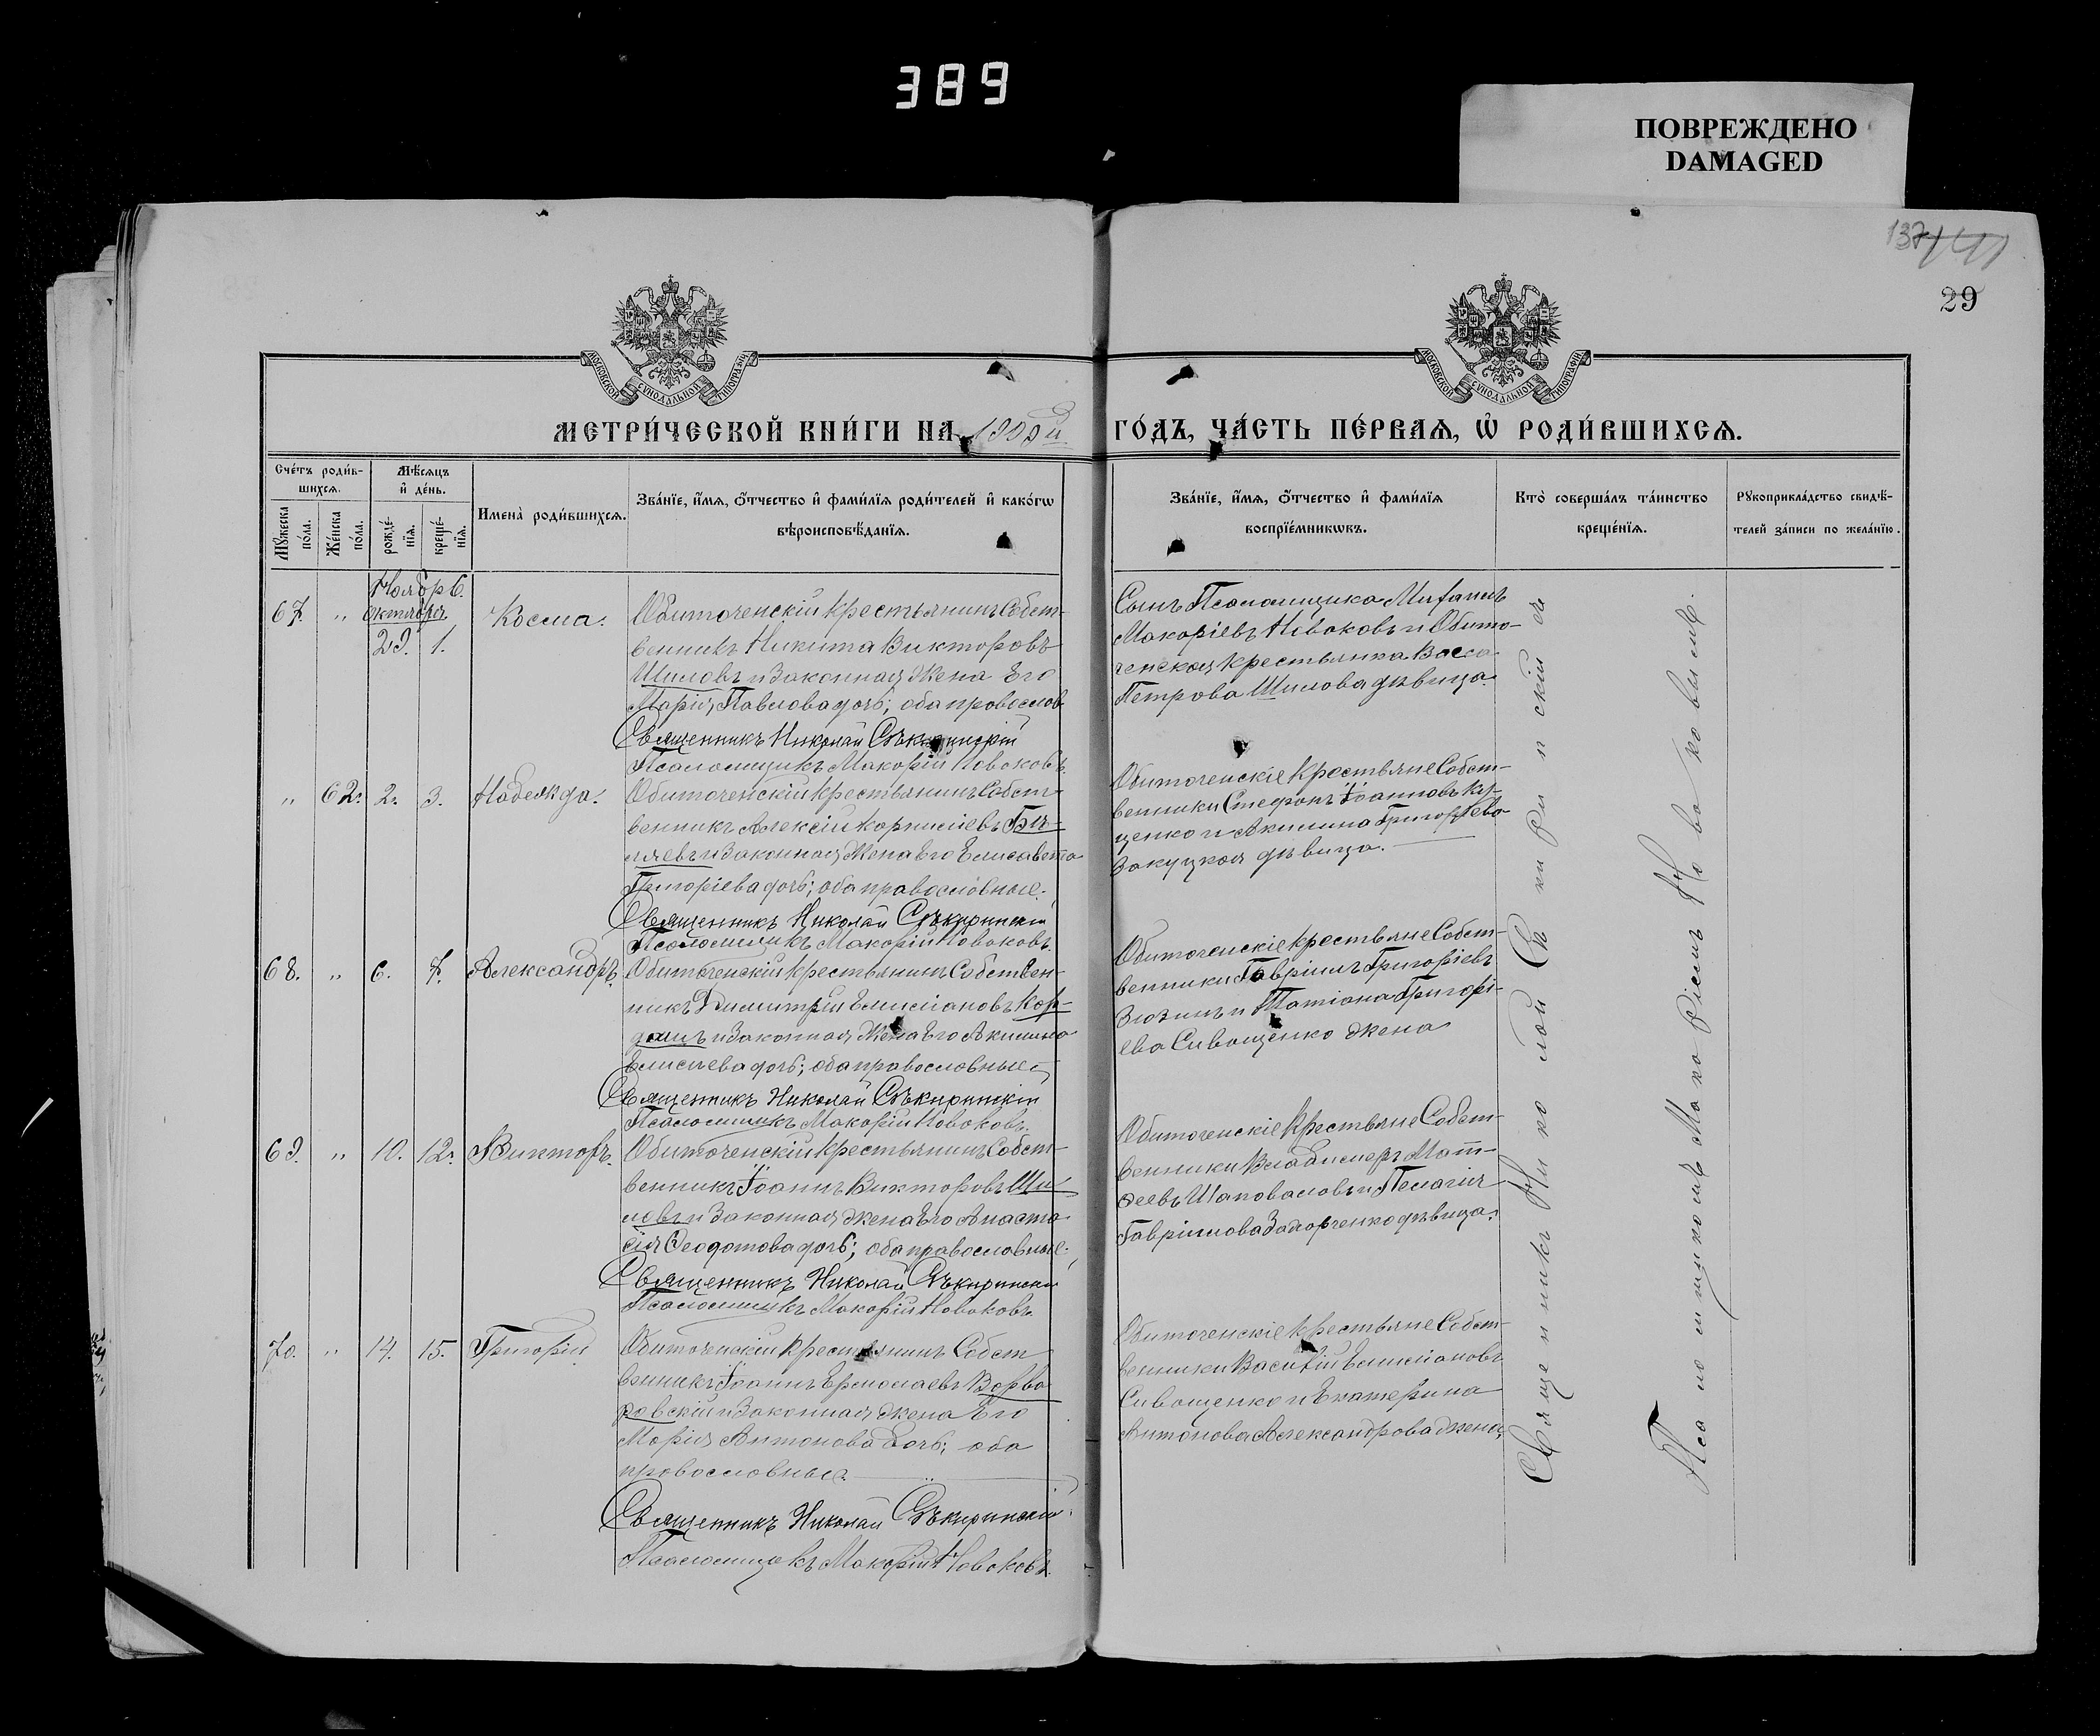 389
ПОВРЕЖДЕНО
DAMAGED
137
29
МОСКОВСКОЙ СѴНОДАЛЬНОЙ ТИПОГРАФІИ
МОСКОВСКОЙ СѴНОДАЛЬНОЙ ТИПОГРАФІИ
МЕТРИ́ЧЕСКОЙ КНИ́ГИ НА
ГО́ДЪ, ЧА́СТЬ ПЕ́РВАѦ, Ѡ҆ РОДИ́ВШИХСѦ.
Сче́тъ роди́в-
шихсѧ.
Мꙋ́жеска по́ла.
Же́нска по́ла.
Мѣ́сѧцъ
и҆ де́нь.
рожде́-нїѧ.
креще́-нїѧ.
Имена̀ роди́вшихсѧ.
Зва́нїе, и҆́мѧ, ѻ҆́тчество и҆ фами́лїѧ роди́телей и҆ како́гѡ
вѣроисповѣ́данїѧ.
Зва́нїе, и҆́мѧ, ѻ҆́тчество и҆ фами́лїѧ
воспрїе́мникѡвъ.
Кто̀ соверша́лъ та́инство
креще́нїѧ.
Рꙋкоприкла́дство свидѣ́-
телей за́писи по жела́нїю.
67. " Ноябр6.
Октября
29. 1.
Косма.
Обиточенскій крестьянинъ собст-
венникъ Никита Викторовъ
Шиловъ и законная жена его
Марія Павлова дочь; оба православ
Священникъ Николай Сѣкиринскій
Псаломщикъ Макарій Новаковъ.
Сынъ Псаломщика Миѳаилъ
Макаріевъ Новаковъ и Обито-
ченская крестьянка Васса
Петрова Шилова дѣвица.
" 62. 2. 3. Надежда.
Обиточенскій крестьянинъ собст-
венникъ Алексій Корниліевъ Бѣ-
ляевъ и законная жена его Елисавета
Григоріева дочь; оба православные.
Священникъ Николай Сѣкиринскій
Псаломщикъ Макарій Новаковъ.
Обиточенскіе крестьяне собст-
венники Стефанъ Іоанновъ
и Акилина Григоріева
Закуцкая дѣвица.
68. " 6. 7. Александръ.
Обиточенскій крестьянинъ собствен-
никъ Димитрій Емиліановъ Кор-
и законная жена его Акилина
Елисѣева дочь; оба православные
Священникъ Николай Сѣкиринскій
Псаломщикъ Макарій Новаковъ.
Обиточенскіе крестьяне собст-
венники Гавріилъ Григоріевъ
Зюзинъ и Татіана Григорі-
ева Сиващенко жена
69. " 10. 12. Викторъ.
Обиточенскій крестьянинъ собст-
венникъ Іоаннъ Викторовъ Ши-
ловъ и законная жена его Анаста-
сія Ѳеодотова дочь; оба православные.
Священникъ Николай Сѣкиринскій
Псаломщикъ Макарій Новаковъ.
Обиточенскіе крестьяне собст-
венники Владимеръ Мат-
ѳеевъ Шаповаловъ и Пелагія
Гавріилова дѣвица.
70. " 14. 15. Григорій.
Обиточенскій крестьянинъ собст
венникъ Іоаннъ Ермолаевъ Варва
ровскій и законная жена его
Марія Антонова дочь; оба
православные.
Священникъ Николай Сѣкиринскій.
Псаломщикъ Макарій Новаковъ.
Обиточенскіе крестьяне собст-
венники Василій Емиліановъ
Сиващенко и Екатерина
Антонова Александрова жена.
Священникъ Николай Сѣкиринскій съ
Псаломщикомъ Макаріемъ Новаковымъ.